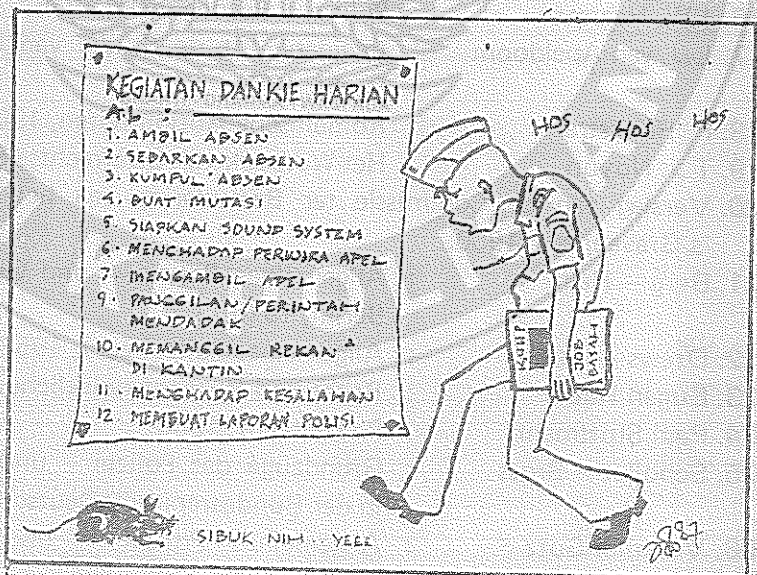 KEGIATAN DANKIE HARIAN
A.L :
1. AMBIL ABSEN
2. SEBARKAN ABSEN
3. KUMPUL² ABSEN
4. BUAT MUTASI
5 SIAPKAN SOUND SYSTEM
6. MENGHADAP PERWIRA APEL
7 MENGAMBIL APEL
9. PANGGILAN/PERINTAH
MENDADAK
10. MEMANGGIL REKAN²
DI KANTIN
11. MENGHADAP KESALAHAN
12 MEMBUAT LAPORAN POLISI
HOS HOS HOS
KUHP
JOB
SIBUK NIH.. YEEE
87